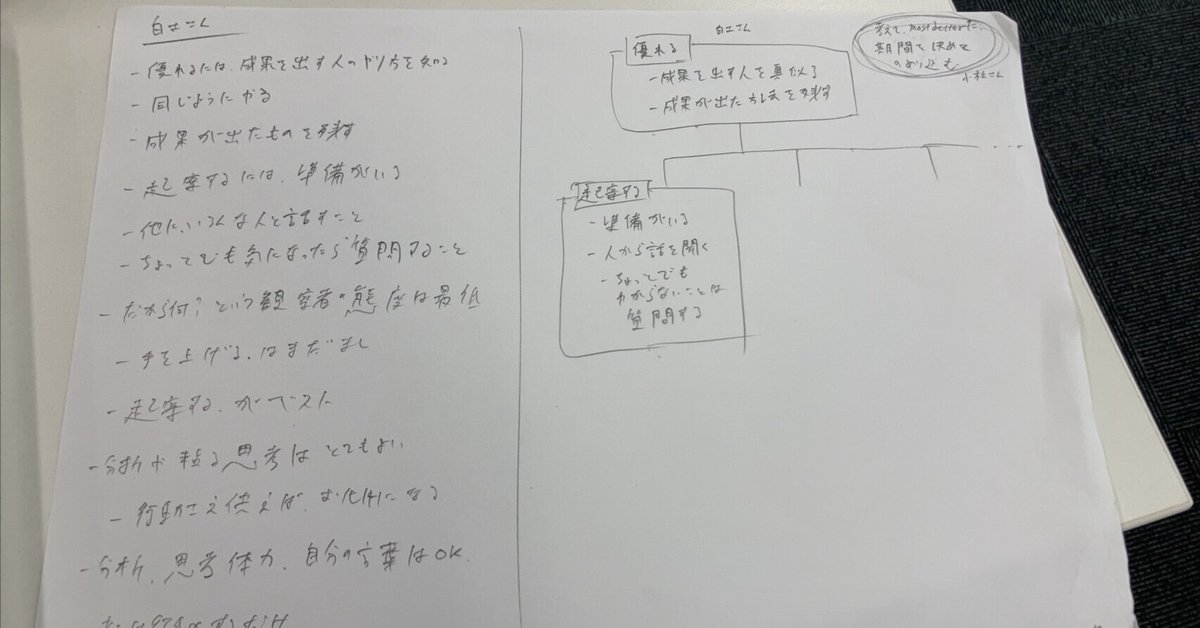 白土さん
- 優れるには、成果を出す人のやり方を知る
- 同じようにやる
- 成果が出たものを残す
- 起案するには、準備がいる
- 他にいろんな人と話すこと
- ちょっとでも気になったら質問すること
- だから何？という観察者の態度は最低
- 手を上げる、はまだまし
- 起案する、がベスト
- 分析や粘る思考はとてもよい
- 行動さえ伴えば、お化けになる
- 分析、思考体力、自分の言葉はOK.
白土さん
優れる
- 成果を出す人を真似る
- 成果が出た方法を残す
考えて、most betterな、
期間で決めて
のめり込む
小松さん
起案する
- 準備がいる
- 人から話を聞く
- ちょっとでも
わからないことは
質問する